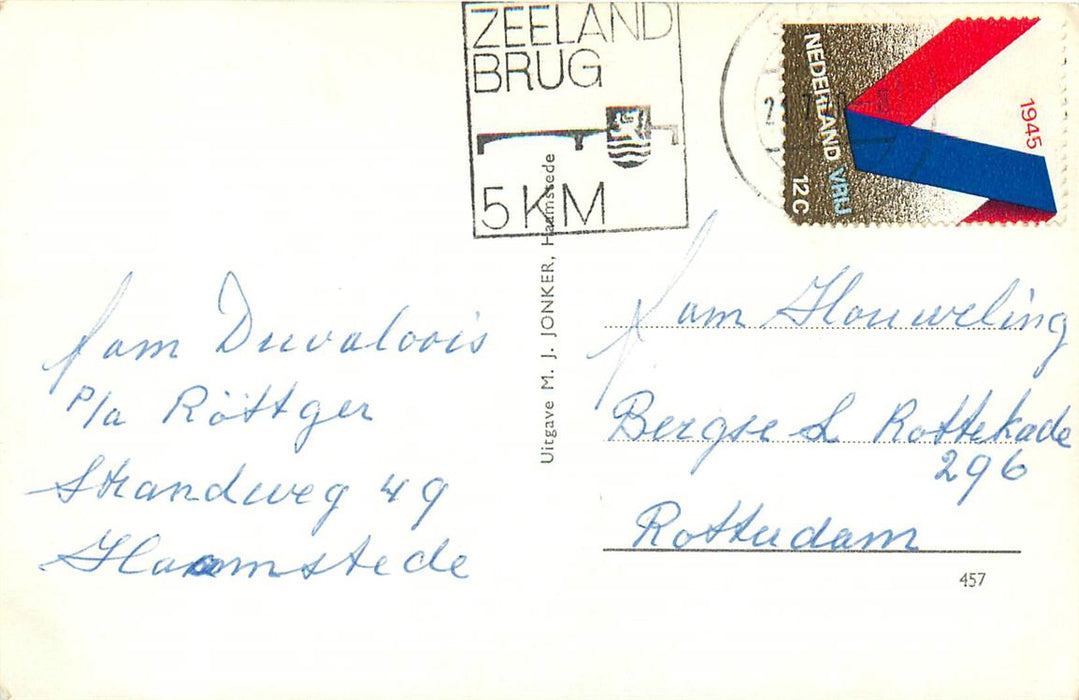 ZEELAND
BRUG
5 KM
NEDERLAND VRIJ
12 C
1945
Uitgave M. J. JONKER, Haamstede
fam Duvaloois
P/a Röttger
Strandweg 49
Haamstede
fam Houweling
Bergse L Rottekade
296
Rotterdam
457